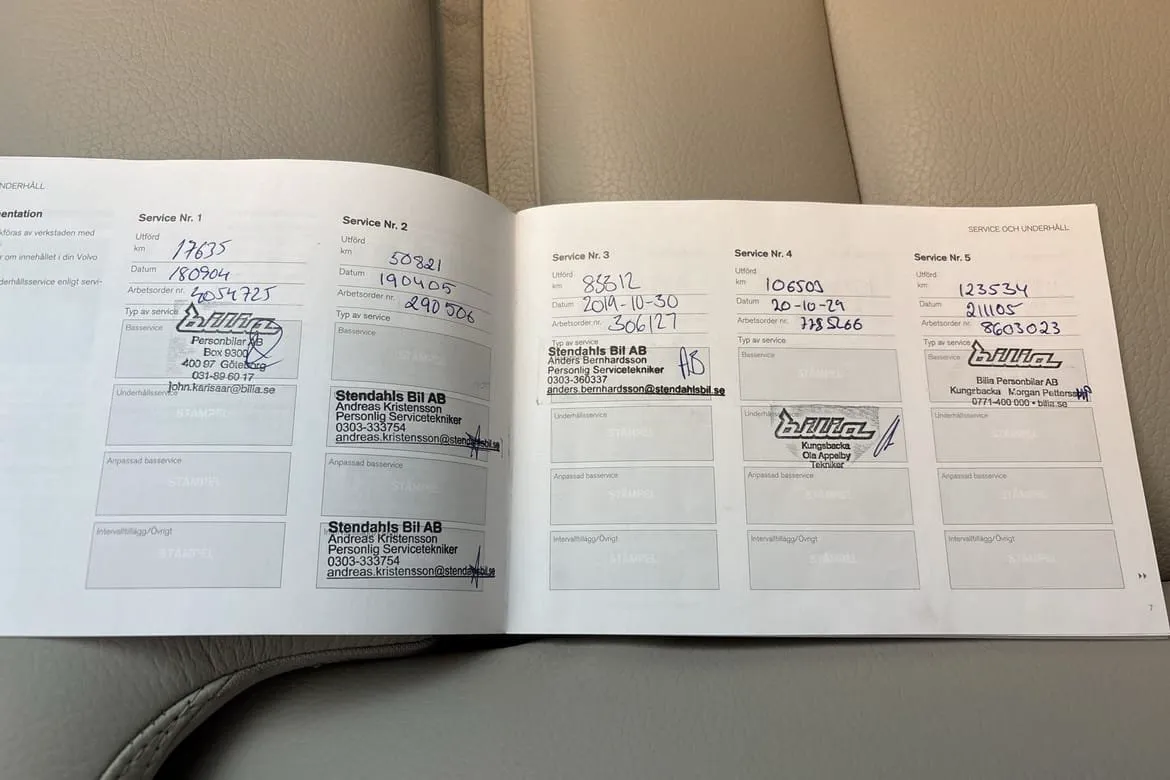 NDERHÅLL
entation
kföras av verkstaden med
r om innehållet i din Volvo
derhållsservice enligt servi-
Service Nr. 1
Utförd
km 17635
Datum 180904
Arbetsorder nr. 4054725
Typ av service
Basservice
bilia
Personbilar AB
Box 9300
400 97 Göteborg
031-89 60 17
john.karlsaar@bilia.se
Underhållsservice
STÄMPEL
Anpassad basservice
STÄMPEL
Intervalltillägg/Övrigt
STÄMPEL
Service Nr. 2
Utförd
km 50821
Datum 190405
Arbetsorder nr. 290506
Typ av service
Basservice
STÄMPEL
Stendahls Bil AB
Andreas Kristensson
Personlig Servicetekniker
0303-333754
andreas.kristensson@stendahlsbil.se
Anpassad basservice
STÄMPEL
Stendahls Bil AB
Andreas Kristensson
Personlig Servicetekniker
0303-333754
andreas.kristensson@stendahlsbil.se
SERVICE OCH UNDERHÅLL
Service Nr. 3
Utförd
km 83312
Datum 2019-10-30
Arbetsorder nr. 306127
Typ av service
Stendahls Bil AB
Anders Bernhardsson
Personlig Servicetekniker
0303-360337
anders.bernhardsson@stendahlsbil.se
AB
Underhållsservice
STÄMPEL
Anpassad basservice
STÄMPEL
Intervalltillägg/Övrigt
STÄMPEL
Service Nr. 4
Utförd
km 106503
Datum 20-10-29
Arbetsorder nr. 7785266
Typ av service
Basservice
STÄMPEL
bilia
Kungsbacka
Ola Appelby
Tekniker
Anpassad basservice
STÄMPEL
Intervalltillägg/Övrigt
STÄMPEL
Service Nr. 5
Utförd
km 123534
Datum 211105
Arbetsorder nr. 8603023
Typ av service
Basservice
bilia
Bilia Personbilar AB
Kungsbacka Morgan Pettersson
0771-400 000 • bilia.se
Underhållsservice
STÄMPEL
Anpassad basservice
STÄMPEL
Intervalltillägg/Övrigt
STÄMPEL
7